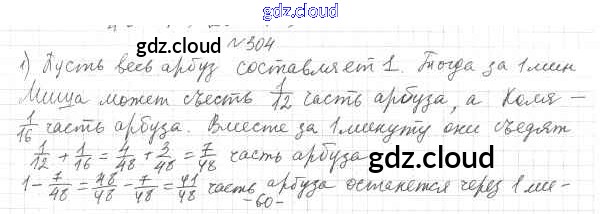 gdz.cloud
№304
gdz.cloud
1) Пусть весь арбуз составляет 1. Тогда за 1 мин
Миша может съесть 1/12 часть арбуза, а Коля –
1/16 часть арбуза. Вместе за 1 минуту они съедят
1/12 + 1/16 = 4/48 + 3/48 = 7/48 часть арбуза
gdz.cloud
1 - 7/48 = 48/48 - 7/48 = 41/48 часть арбуза останется через 1 ми-
-60-